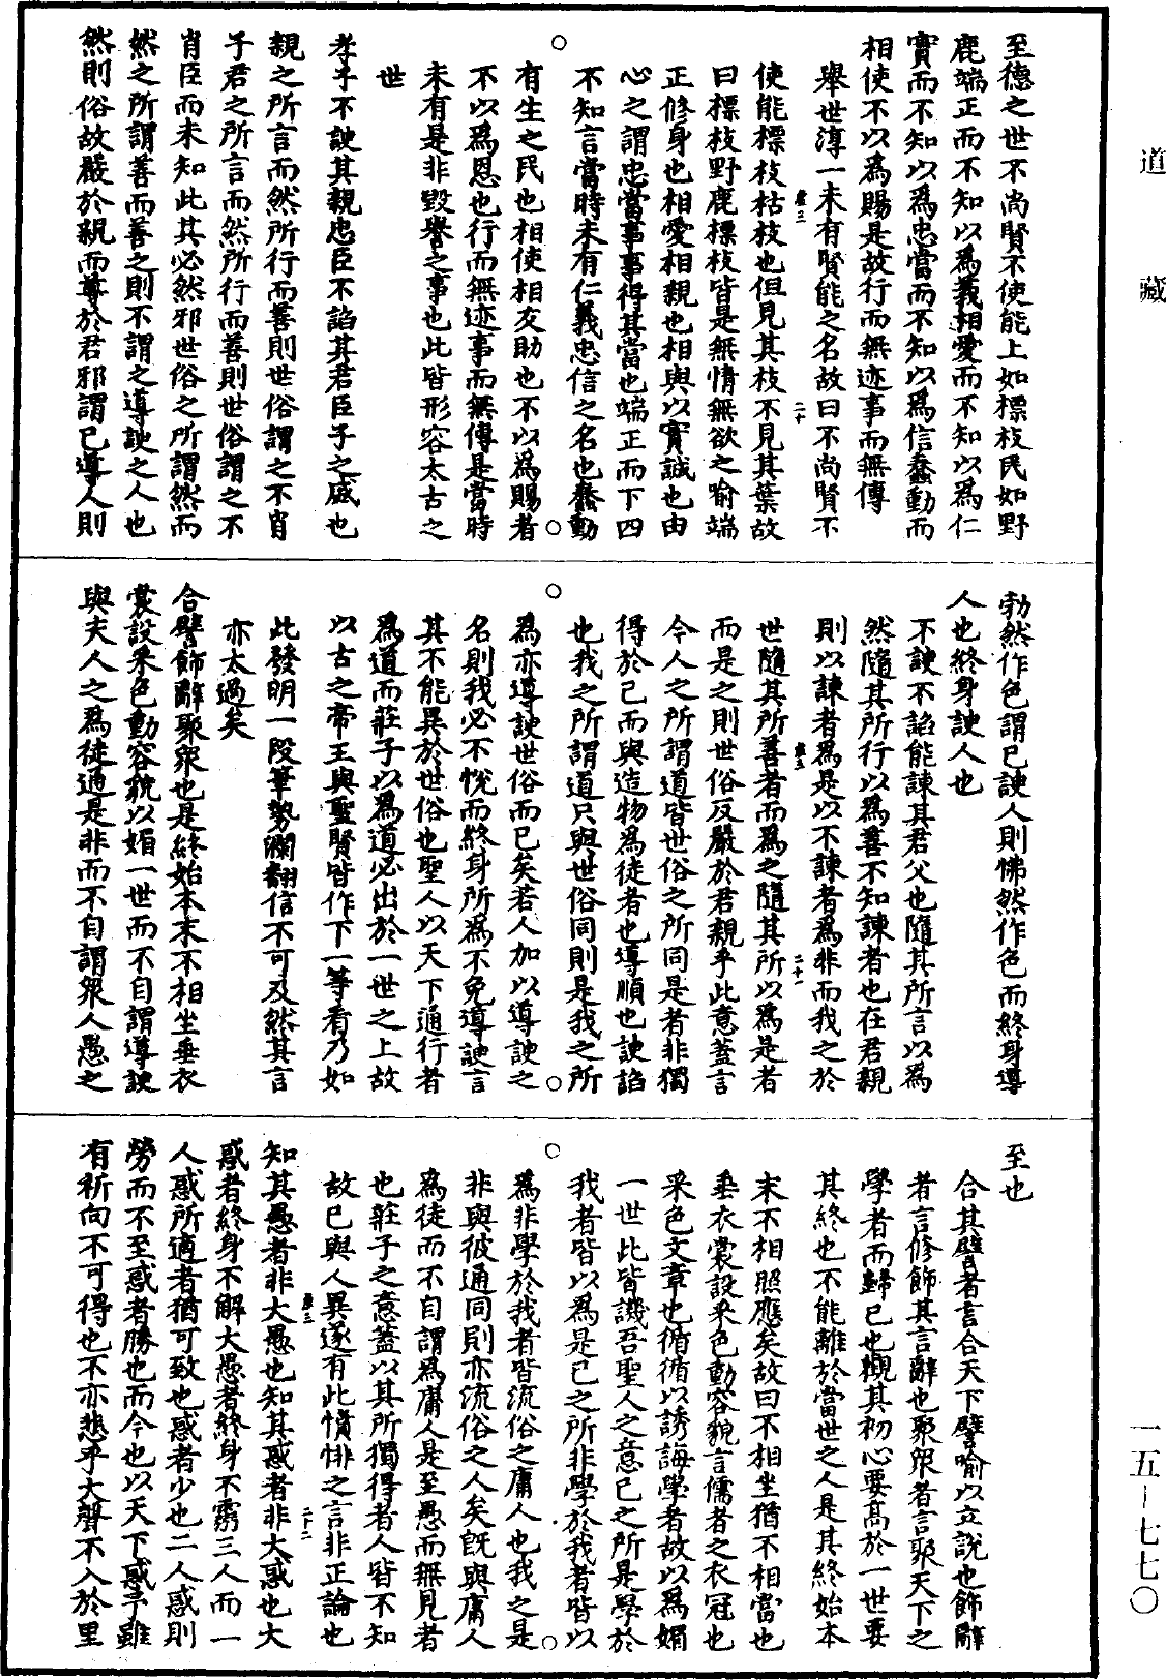 道藏
至德之世不尚賢不使能上如標枝民如野
鹿端正而不知以為義相愛而不知以為仁
實而不知以為忠當而不知以為信蠢動而
相使不以為賜是故行而無迹事而無傳
舉世淳一未有賢能之名故曰不尚賢不
使能標枝枯枝也但見其枝不見其葉故
曰標枝野鹿標枝皆是無情無欲之喻端
正修身也相愛相親也相與以實誠也由
心之謂忠當事事得其當也端正而下四
不知言當時未有仁義忠信之名也蠢動
有生之民也相使相友助也不以為賜者
不以為恩也行而無迹事而無傳是當時
未有是非毀譽之事也此皆形容太古之
世
孝子不諛其親忠臣不諂其君臣子之盛也
親之所言而然所行而善則世俗謂之不肖
子君之所言而然所行而善則世俗謂之不
肖臣而未知此其必然邪世俗之所謂然而
然之所謂善而善之則不謂之導諛之人也
然則俗故嚴於親而尊於君邪謂己導人則
勃然作色謂己諛人則怫然作色而終身導
人也終身諛人也
不諛不諂能諫其君父也隨其所言以為
然隨其所行以為善不知諫者也在君親
則以諫者為是以不諫者為非而我之於
世隨其所善者而為之隨其所以為是者
而是之則世俗反嚴於君親乎此意蓋言
今人之所謂道皆世俗之所同是者非獨
得於己而與造物為徒者也導順也諛諂
也我之所謂道只與世俗同則是我之所
為亦導諛世俗而已矣若人加以導諛之
名則我必不悅而終身所為不免導諛言
其不能異於世俗也聖人以天下通行者
為道而莊子以為道必出於一世之上故
以古之帝王與聖賢皆作下一等看乃如
此發明一段筆勢瀾翻信不可及然其言
亦太過矣
合譬飾辭聚眾也是終始本末不相坐垂衣
裳設采色動容貌以媚一世而不自謂導諛
與夫人之為徒通是非而不自謂眾人愚之
至也
合其譬者言合天下譬喻以立說也飾辭
者言修飾其言辭也聚眾者言聚天下之
學者而歸己也觀其初心要高於一世要
其終也不能離於當世之人是其終始本
末不相照應矣故曰不相坐猶不相當也
垂衣裳設采色動容貌言儒者之衣冠也
采色文章也循循以誘誨學者故以為媚
一世此皆譏吾聖人之意己之所是學於
我者皆以為是己之所非學於我者皆以
為非學於我者皆流俗之庸人也我之是
非與彼通同則亦流俗之人矣既與庸人
為徒而不自謂為庸人是至愚而無見者
也莊子之意蓋以其所獨得者人皆不知
故己與人異遂有此憤悱之言非正論也
知其愚者非大愚也知其惑者非大惑也大
惑者終身不解大愚者終身不靈三人而一
人惑所適者猶可致也惑者少也二人惑則
勞而不至惑者勝也而今也以天下惑予雖
有祈向不可得也不亦悲乎大聲不入於里
二十
二十一
二十二
一五－七七〇